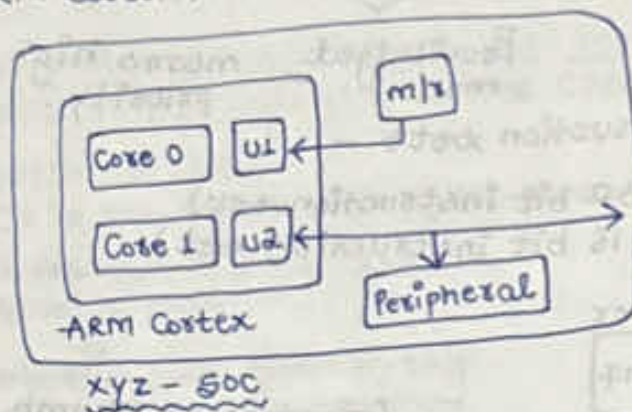 m/r
Core 0 U1
Core 1 U2
Peripheral
ARM Cortex
xyz - SOC